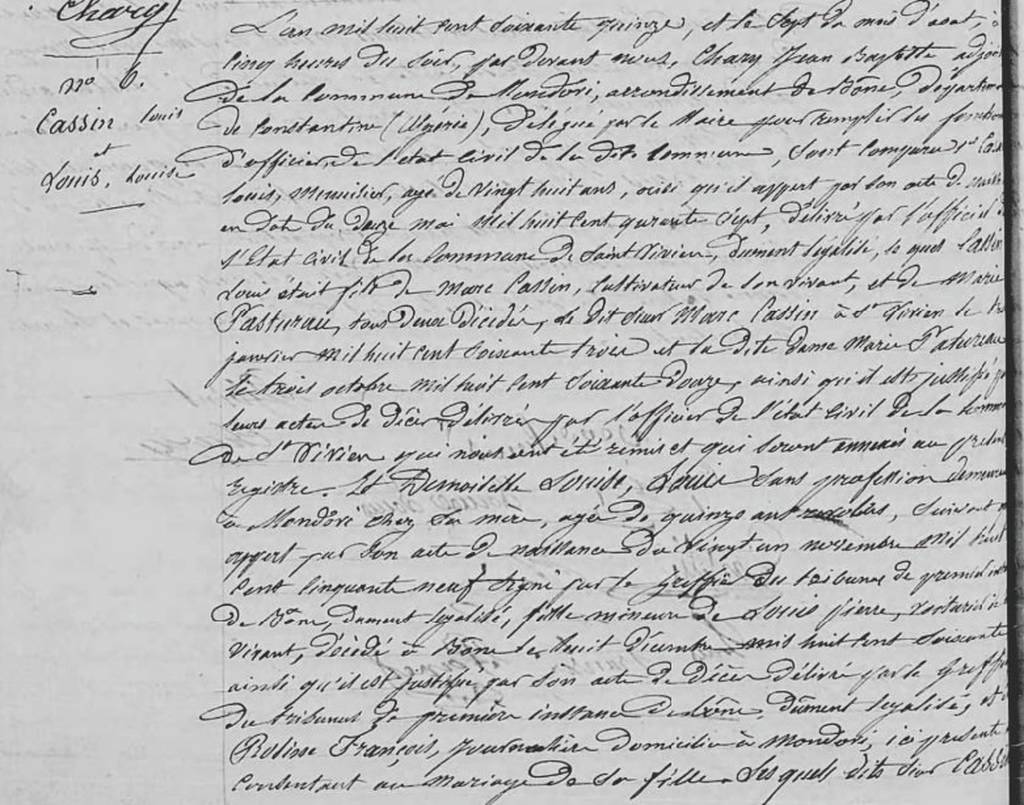 Charg
nº 6.
Cassin Louis
et
Louis, Louise
L'an mil huit cent soixante quinze, et le sept du mois d'aout, à
cinq heures du soir, par devant nous, Chary Jean Baptiste adjoi
de la Commune de Mondovi, arrondissement de Bône, départem
de Constantine (Algérie), délégué par le Maire pour remplir les fonction
d'officier de l'état Civil de la dite Commune, sont comparu 1º Cas
Louis, Menuisier, agé de vingt huit ans, ainsi qu'il appert par son acte de naiss
en date du douze mai mil huit cent quarante sept, délivré par l'officier d
l'Etat civil de la Commune de Saint Vivien, dument légalisé, le quel Cassin
Louis était fils de Marc Cassin, Cultivateur de son vivant, et de Marie
Pastureau, tous deux décédés, le dit sieur Marc Cassin à St Vivien le
janvier mil huit cent soixante trois et la dite dame Marie Patureau
le trois octobre mil huit cent soixante douze, ainsi qu'il est justifié p
leurs actes de décès délivrés par l'officier de l'état Civil de la Comm
de St Vivien qui nous ont été remis et qui seront annexés au présent
registre. Et Demoiselle Louise, Louis sans profession demeurant
à Mondovi chez sa mère, agée de quinze ans révolus, suivant
appert par son acte de naissance du vingt un novembre mil huit
cent cinquante neuf signé par le greffier des tribunaux de première inst
de Bône, dument légalisé, fille mineure de Louis Pierre, voiturier de
vivant, décédé à Bône le huit décembre mil huit cent soixante
ainsi qu'il est justifié par son acte de décès délivré par le greffier
du tribunal de première instance de Bône, dûment légalisé, et d
François, journalière domiciliée à Mondovi, ici présente
consentant au mariage de sa fille. Les quels dits sieur Cassin